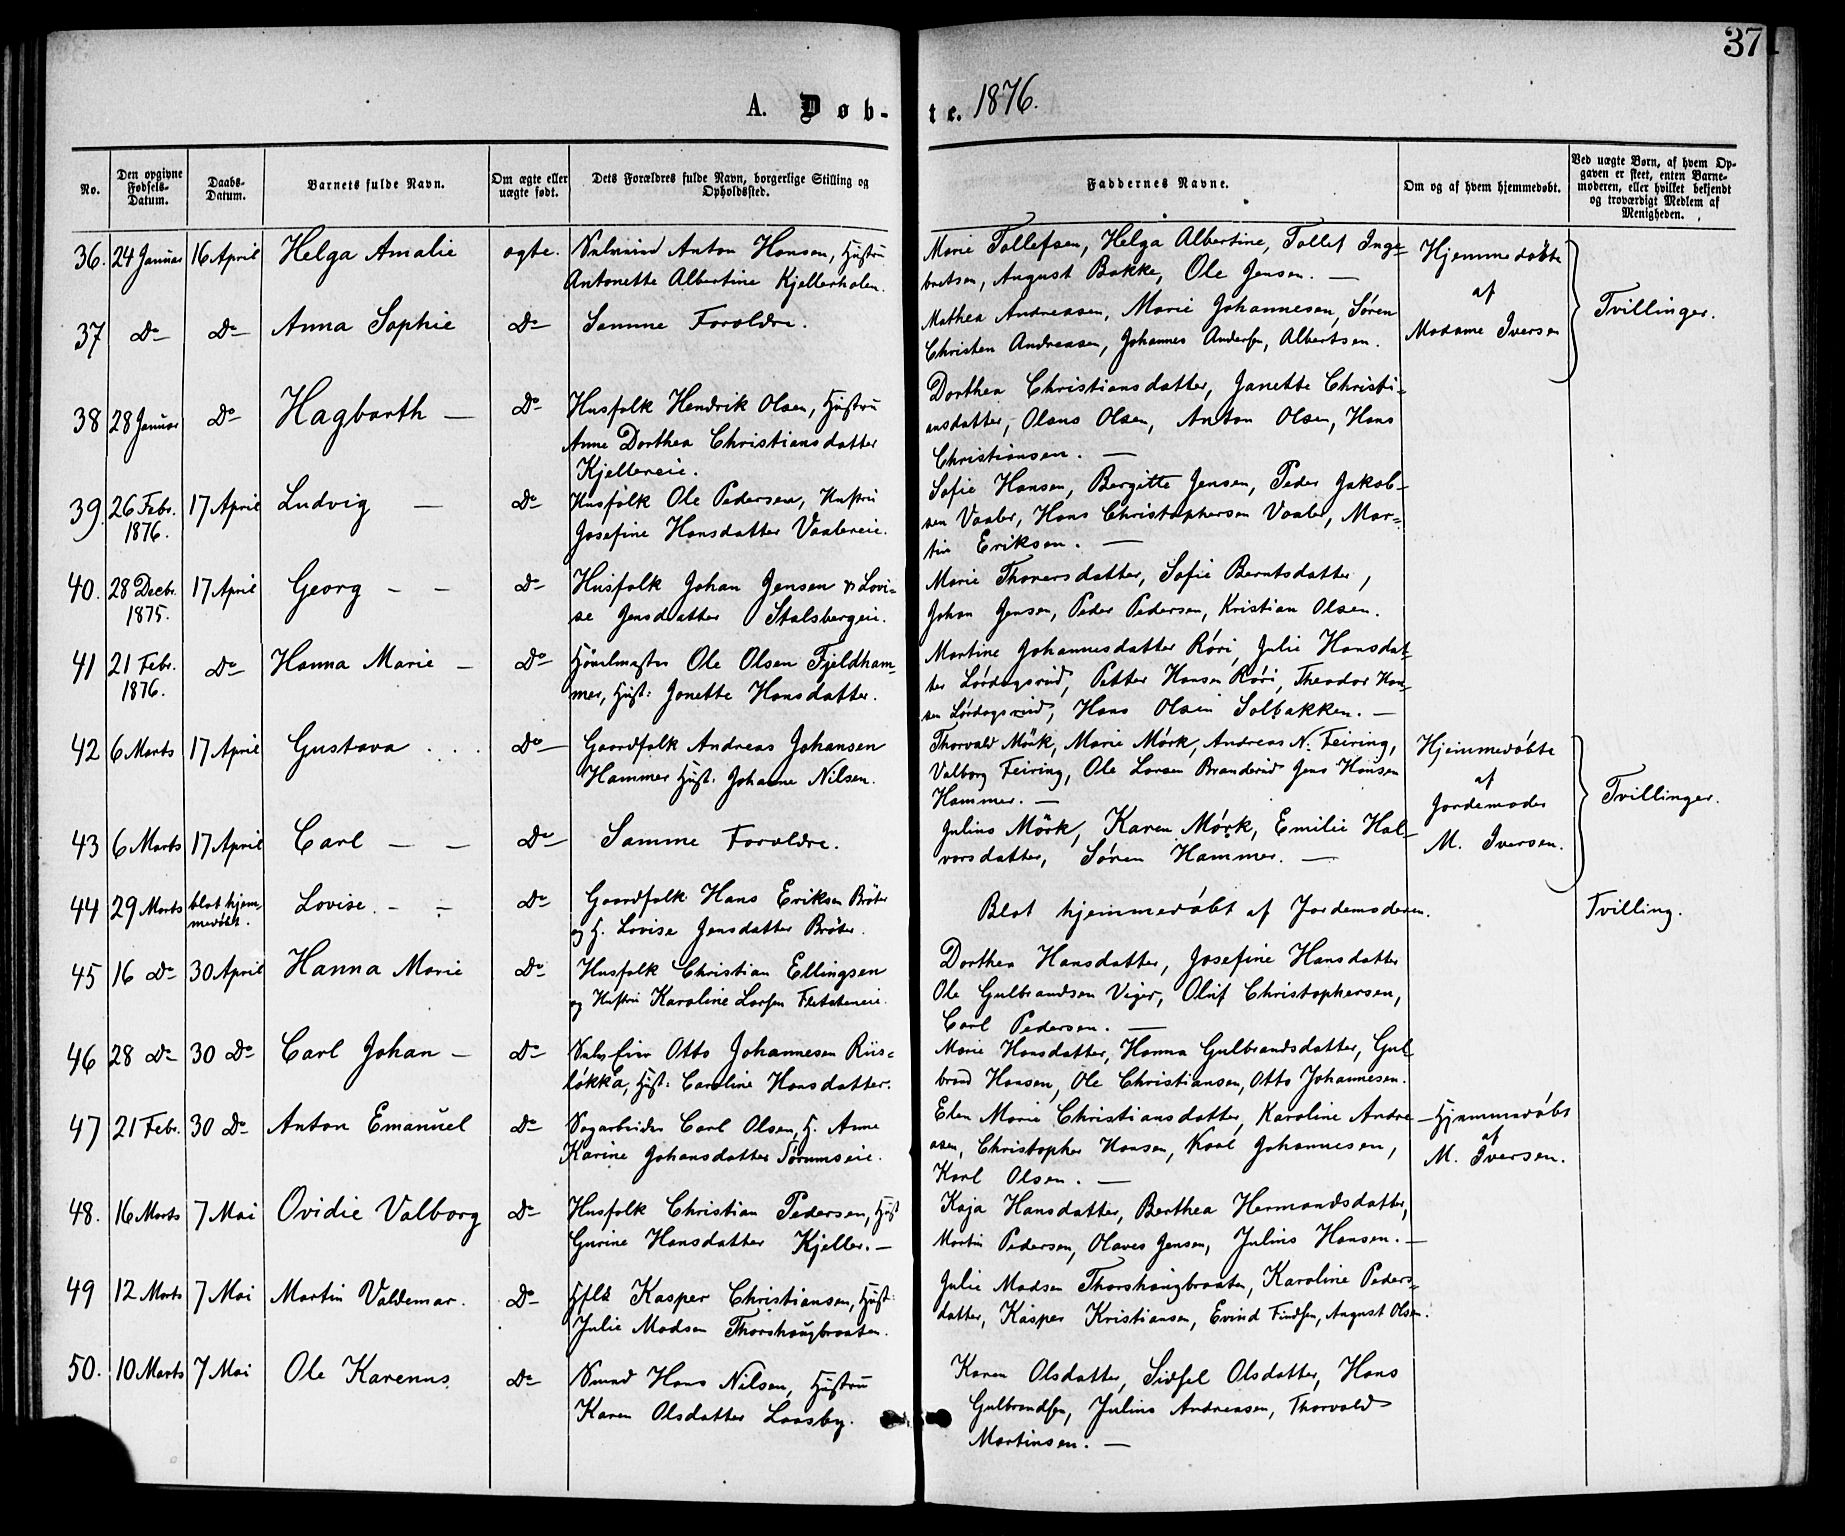 37
A. Døb-
te. 1876.
No.
Den opgivne Fødsels-Datum.
Daabs-Datum.
Barnets fulde Navn.
Om ægte eller uægte født.
Dets Forældres fulde Navn, borgerlige Stilling og Opholdssted.
Faddernes Navne.
Om og af hvem hjemmedøbt.
Ved uægte Børn, af hvem Opgaven er skeet, enten Barnemoderen, eller hvilket bekjendt og troværdigt Medlem af Menigheden.
36. 24 Januar 16 April Helga Amalie ægte. Anton Hansen, Hustru
Antonette Albertine Kjellerholen.
Marie Tollefsen, Helga Albertine, Tollef Inge-
bretsen, August Bakke, Ole Jensen. —
Hjemmedøbte
af
Madame Iversen
Tvillinger.
37 Do Do Anna Sophie Do Samme Forældre.
Mathea Andreasen, Marie Johannesen, Søren
Christen Andreasen, Johannes Andersen, Albertsen.
38 28 Januar Do Hagbarth — Do Husfolk Hendrik Olsen, Hustru
Anne Dorthea Christiansdatter
Kjellereie.
Dorthea Christiansdatter, Janette Christi-
ansdatter, Olaus Olsen, Anton Olsen, Hans
Christiansen. —
39. 26 Febr. 1876. 17 April Ludvig — Do Husfolk Ole Pedersen, Hustru
Josefine Hansdatter Vaalereie.
Sofie Hansen, Bergitte Jensen, Peder Jakob-
sen Vaaler, Hans Christophersen Vaaler, Mar-
tin Eriksen. —
40. 28 Decbr. 1875. 17 April Georg — — Do Husfolk Johan Jensen & Lovi-
se Jensdatter Stalsbergeie.
Marie Thorersdatter, Sofie Berntsdatter,
Johan Jensen, Peder Pedersen, Kristian Olsen.
41 21 Febr. 1876. Do Hanna Marie — Do Ole Olsen Fjeldham-
mer, Hust: Jonette Hansdatter.
Martine Johannesdatter Röri, Julie Hansdat-
ter Lördagsrud, Petter Hansen Röri, Theodor Han-
sen Lördagsrud, Hans Olsen Solbakken. —
42 6 Marts 17 April Gustava . . . Do — Gaardfolk Andreas Johansen
Hammer Hust: Johanne Nilsen.
Thorvald Mörk, Marie Mörk, Andreas N. Feiring,
Valborg Feiring, Ole Larsen Branderud Jens Hansen
Hammer. —
Hjemmedöbte
af
Jordemoder
M. Iversen.
Tvillinger.
43 6 Marts 17 April Carl — — Do Samme Forældre.
Julius Mörk, Karen Mörk, Emilie Hal-
vorsdatter, Sören Hammer. —
44 29 Marts blot hjem-
medöbt. Lovise. — — Do Gaardfolk Hans Eriksen Bröter
og H. Lovise Jensdatter Bröter.
Blot hjemmedöbt af Jordemoderen.
Tvilling.
45 16 Do 30 April Hanna Marie Do Husfolk Christian Ellingsen
og Hustru Karoline Larsen
Dorthea Hansdatter, Josefine Hansdatter
Ole Gulbrandsen Viger, Oluf Christophersen,
Carl Pedersen. —
46 28 Do 30 Do Carl Johan — Do Otto Johannesen Riis-
lökka, Hust: Caroline Hansdatter.
Marie Hansdatter, Hanna Gulbrandsdatter, Gul-
brand Hansen, Ole Christiansen, Otto Johannesen.
47 21 Febr. 30 Do Anton Emanuel Do Sagarbeider Carl Olsen, H. Anne
Karine Johansdatter Sörumseie.
Elen Marie Christiansdatter, Karoline Andre-
asen, Christopher Hansen, Karl Johannesen,
Karl Olsen. —
Hjemmedöbt
af
M. Iversen.
48. 16 Marts 7 Mai Ovidie Valborg Do Husfolk Christian Pedersen, Hust
Gurine Hansdatter Kjeller. —
Kaja Hansdatter, Berthea Hermandsdatter,
Martin Pedersen, Olaves Jensen, Julius Hansen. —
49 12 Marts 7 Mai Martin Valdemar. Do Hflk Kasper Christiansen, Hust
Julie Madsen Thorshaugbraaten.
Julie Madsen Thorshaugbraaten, Karoline Peders-
datter, Kasper Kristiansen, Evind Findsen, August Olsen.
50. 10 Marts 7 Mai Ole Karenus. Do Smed Hans Nilsen, Hustru
Karen Olsdatter Laasby.
Karen Olsdatter, Sidsel Olsdatter, Hans
Gulbrandsen, Julius Andreasen, Thorvald
Martinsen. —